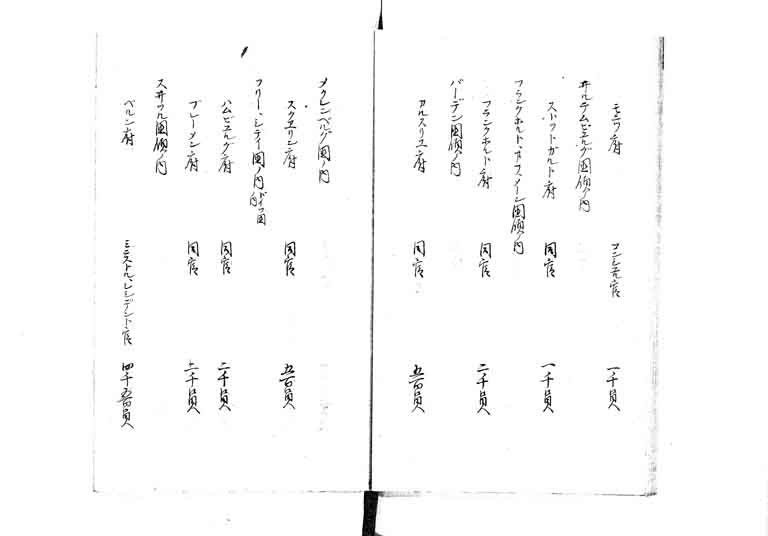 モニフ府 コンシュル官 一千員
井ルテムビュルグ國領ノ内
ストフトガルト府 同官 一千員
フランクホルト、ヲフ、メーン國領ノ内
フランクホルト府 同官 二千員
バーデン國領ノ内
カルスリユ府 同官 五百員
メクレンベルグ國ノ内
スクエリン府 同官 五百員
フリー、シティー國ノ内
ハムビュルグ府 同官 二千員
ブレーメン府 同官 二千員
スヰツル國領ノ内
ベルン府 ミニストル、レシデント官 四千五百員